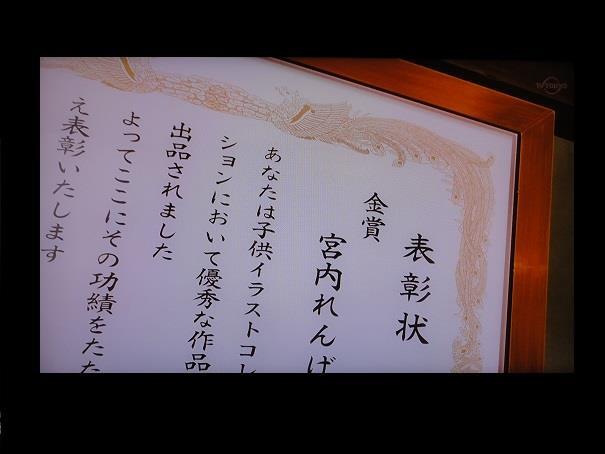 表彰状
金賞
宮内れんげ
あなたは子供イラストコレ
ションにおいて優秀な作品
出品されました
よってここにその功績をたた
え表彰いたします
TV TOKYO